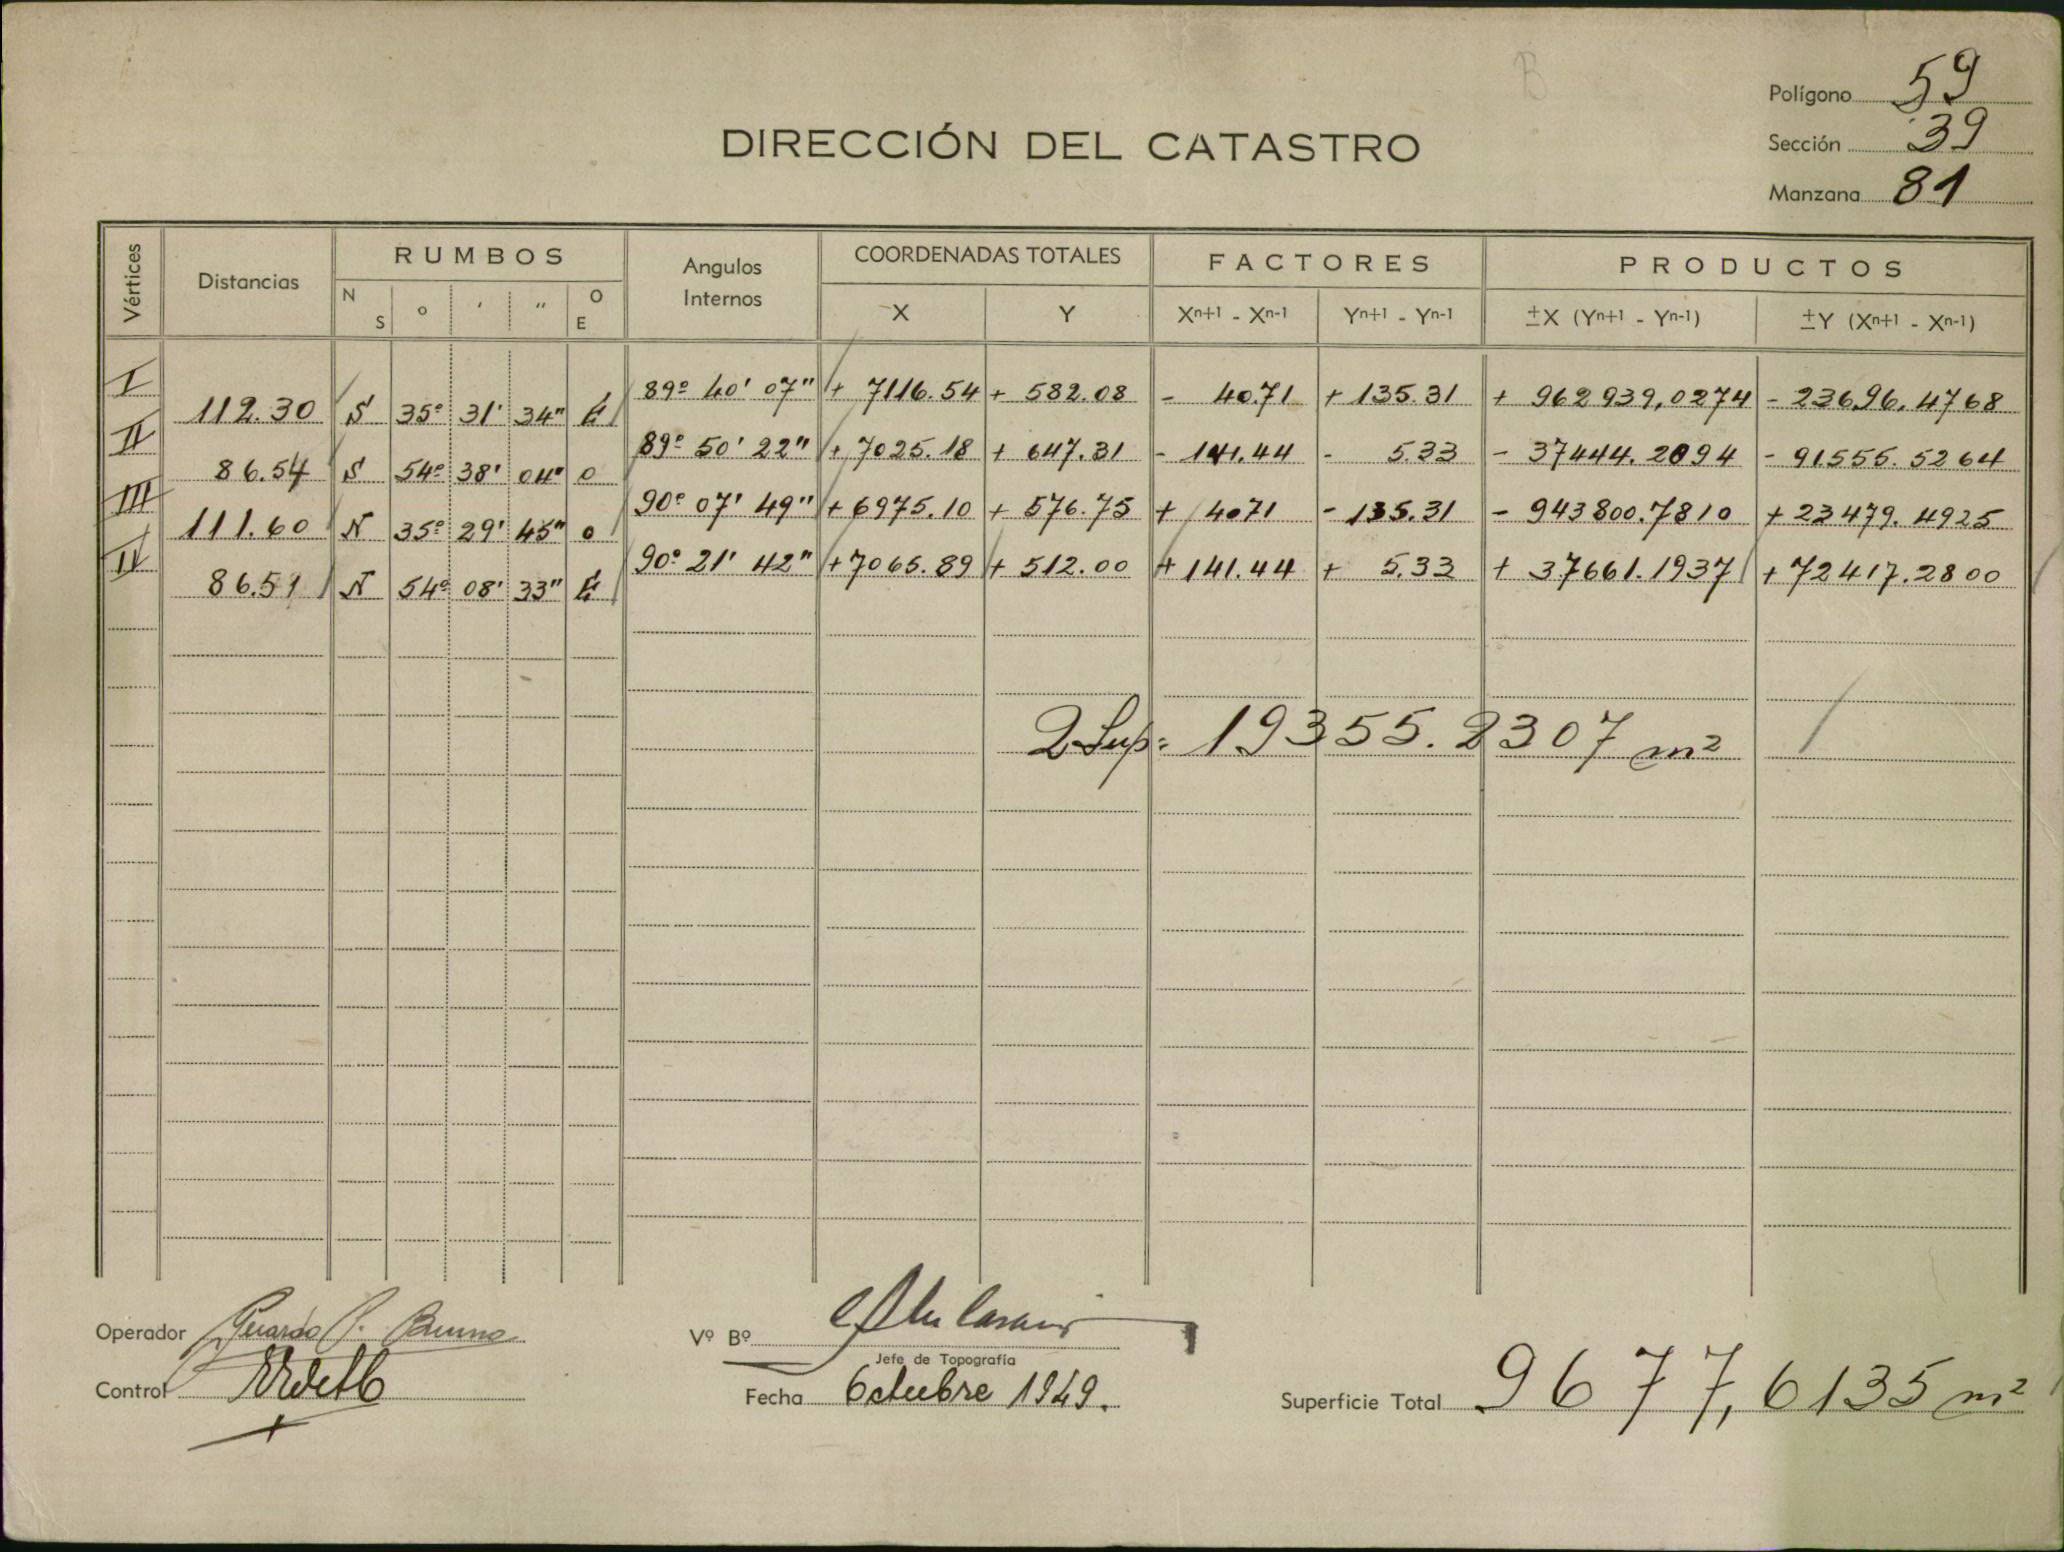 B
Polígono 59
DIRECCIÓN DEL CATASTRO
Sección 39
Manzana 81
Vértices Distancias RUMBOS Angulos Internos COORDENADAS TOTALES FACTORES PRODUCTOS
N S ° ' " O E X Y Xn+1 - Xn-1 Yn+1 - Yn-1 ±X (Yn+1 - Yn-1) ±Y (Xn+1 - Xn-1)
I 89º 40' 07" + 7116.54 + 582.08 - 40.71 + 135.31 + 962939,0274 - 23696.4768
112.30 S 35º 31' 34" E
II 89º 50' 22" + 7025.18 + 647.31 - 141.44 - 5.33 - 37444.2094 - 91555.5264
86.54 S 54º 38' 04" O
III 90º 07' 49" + 6975.10 + 576.75 + 40.71 - 135.31 - 943800.7810 + 23479.4925
111.60 N 35º 29' 45" O
IV 90º 21' 42" + 7065.89 + 512.00 + 141.44 + 5.33 + 37661.1937 + 72417.2800
86.51 N 54º 08' 33" E
2 Sup= 19355.2307 m²
Operador
Vº Bº
Jefe de Topografía
Control
Fecha Octubre 1949.
Superficie Total 9677,6135 m²